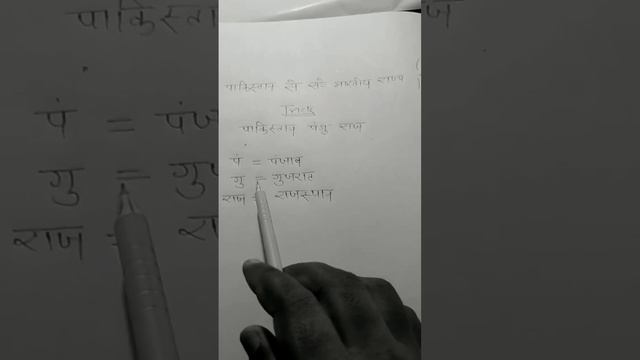 पाकिस्तान से सटे भारतीय राज्य
Trick
पाकिस्तान पंगु राज
पं = पंजाब
गु = गुजरात
राज = राजस्थान